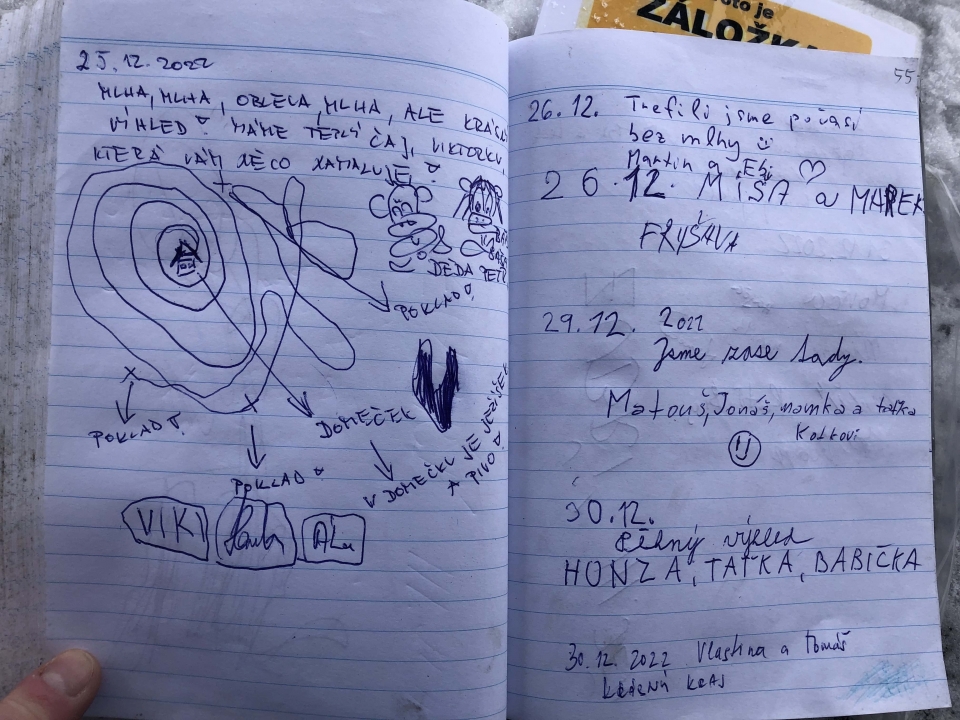 25.12.2022
MLHA, MLHA, OBLEVA, MLHA, ALE KRÁSNÝ
VÍHLED! MÁME TEPLÝ ČAJ, VIKTORKU,
KTERÁ VÁM NĚCO NAMALUJE!
DĚDA PETR
POKLAD!
DOMEČEK
POKLAD!
POKLAD!
V DOMEČKU JE JEŽÍŠEK
A PIVO!
VIK
toto je
ZÁLOŽKA
55
26.12. Trefili jsme počasí
bez mlhy
Martin a
26.12. MÍŠA a MAREK
FRYŠAVA
29.12. 2022
Jsme zase tady.
Matouš, Jonáš, mamka a taťka
30.12.
pěkný výhled
HONZA, TAŤKA, BABIČKA
30.12.2022 Vlastina a Tomáš
KRÁSNÝ KRAJ